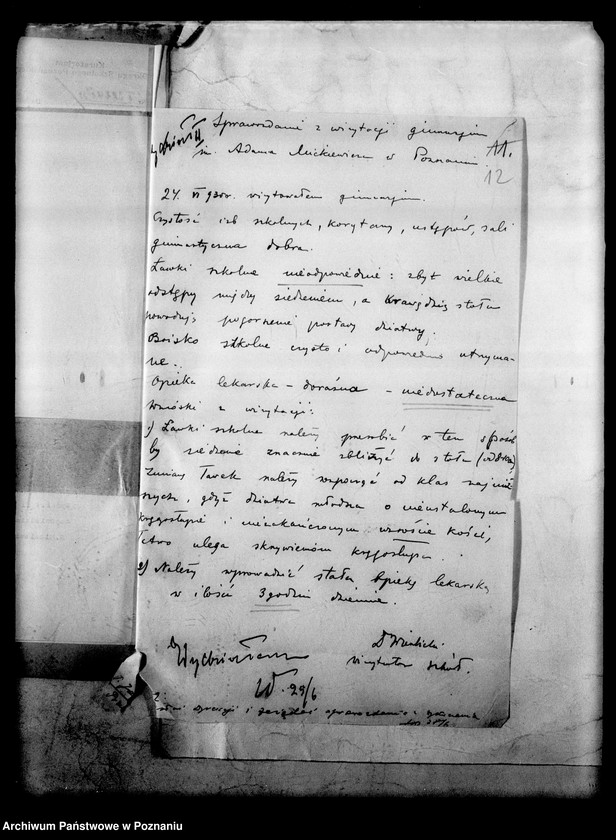 Sprawozdanie z wizytacji gimnazjum
im. Adama Mickiewicza w Poznaniu.
11.
12
24. VI 930 r. wizytowałem gimnazjum.
Czystość izb szkolnych, korytarzy, ustępów, sali
gimnastyczna dobra.
Ławki szkolne nieodpowiednie: zbyt wielkie
odstępy między siedzeniem, a krawędzią stołu
powodują pogorszenie postawy dziatwy.
Boisko szkolne czysto i odpowiednio utrzyma-
ne.
Opieka lekarska – doraźna – niedostateczna
Wnioski z wizytacji:
1) Ławki szkolne należy przerobić w ten sposób
by siedzenie znacznie zbliżyć do stołu
Zmianę ławek należy rozpocząć od klas najniż-
szych, gdyż dziatwa młodsza o nieustalonym
kręgosłupie i niezakończonym wzroście kości,
łatwo ulega skrzywieniom kręgosłupa.
2) Należy wprowadzić stałą opiekę lekarską
w ilości 3 godzin dziennie.
wizytator szkół.
29/6
Archiwum Państwowe w Poznaniu